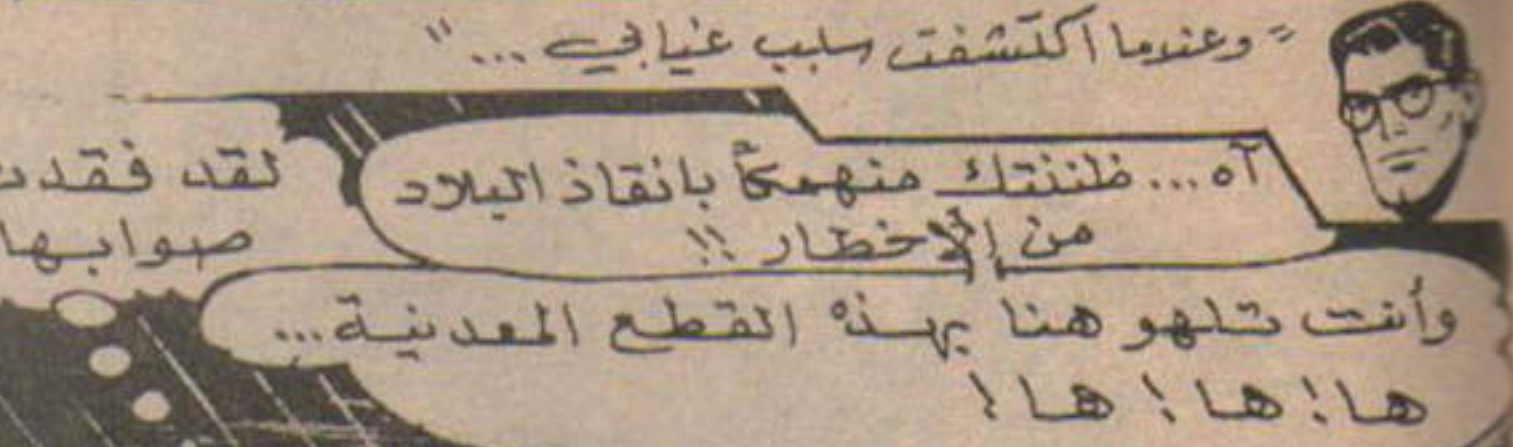 "وعندما اكتشفت سبب غيابي ..."
آه... ظننتك منهمكاً بانقاذ البلاد
من الأخطار !!
وأنت تلهو هنا بهذه القطع المعدنية...
ها! ها! ها!
لقد فقدت
صوابها